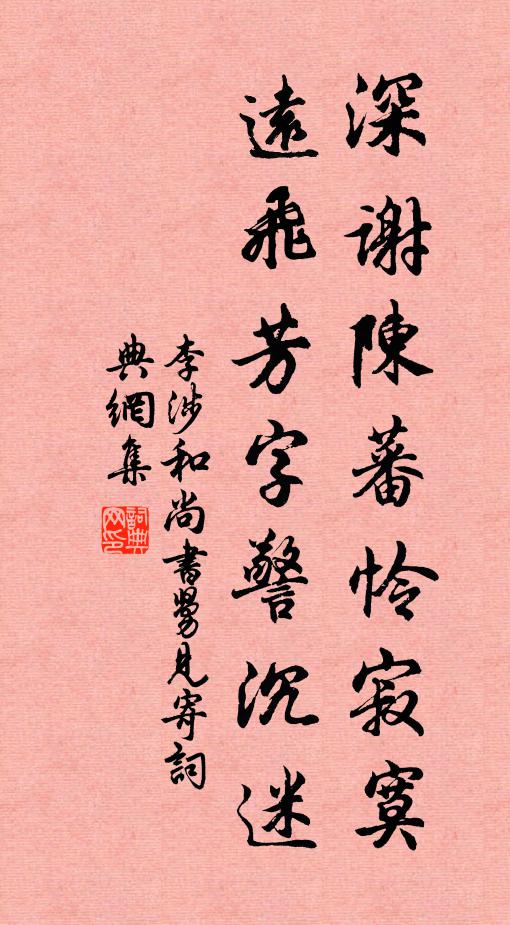 深谢陳蕃怜寂寞
遠飛芳字警沉迷
李涉和尚書舅見寄詞
典網集
詞典網印